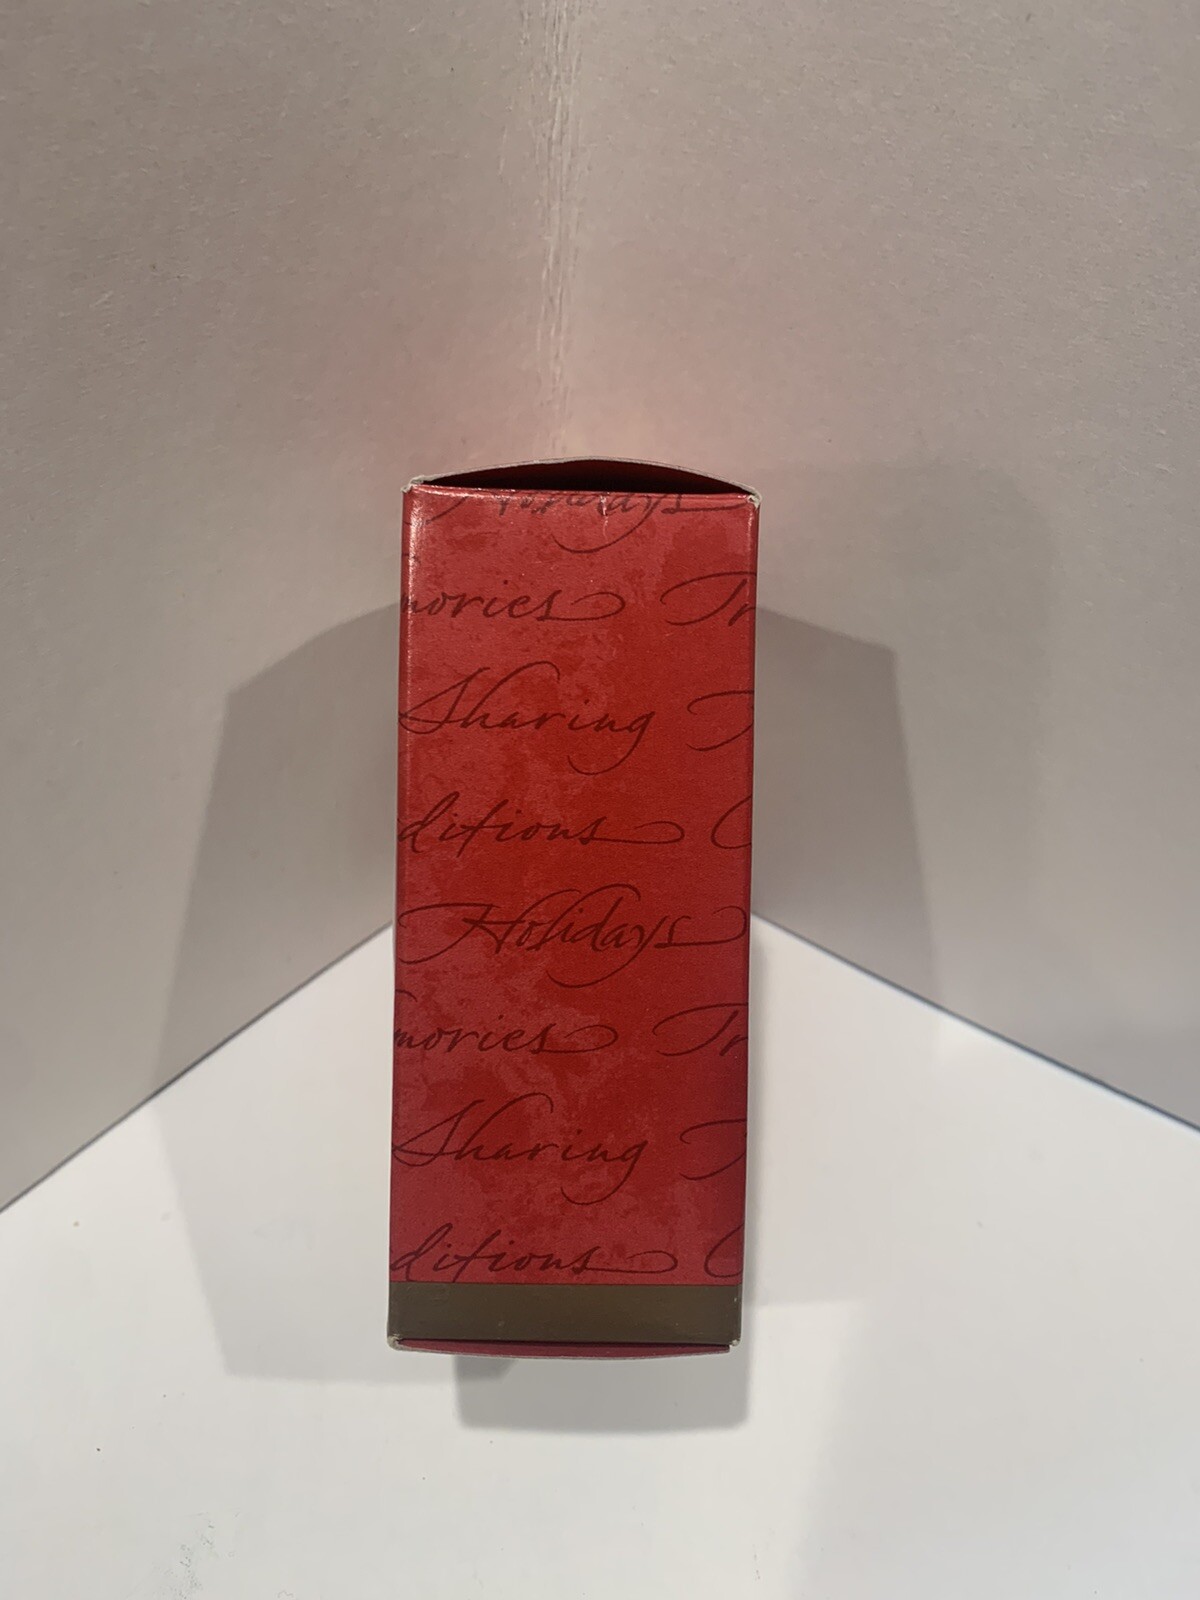 Holidays
mories Tr
Sharing T
ditions C
Holidays
mories Tr
Sharing T
ditions C